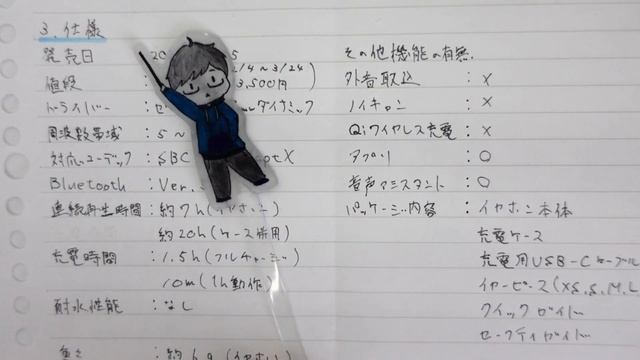 3. 仕様
発売日 : 20 5
/4~3/24)
値段 : 3,500円
ドライバー : セ ダイナミック
周波数帯域 : 5~
対応コーデック : SBC ptX
Bluetooth : Ver.
連続再生時間 : 約7h(イヤホン)
約20h(ケース併用)
充電時間 : 1.5h(フルチャージ)
10m(1h動作)
耐水性能 : なし
重さ : 約 6g(イヤホン)
その他機能の有無.
外音取込 : ×
ノイキャン : ×
Qiワイヤレス充電 : ×
アプリ : ○
音声アシスタント : ○
パッケージ内容 : イヤホン本体
充電ケース
充電用USB-Cケーブル
イヤーピース(XS,S,M,L
クイックガイド
セーフティガイド